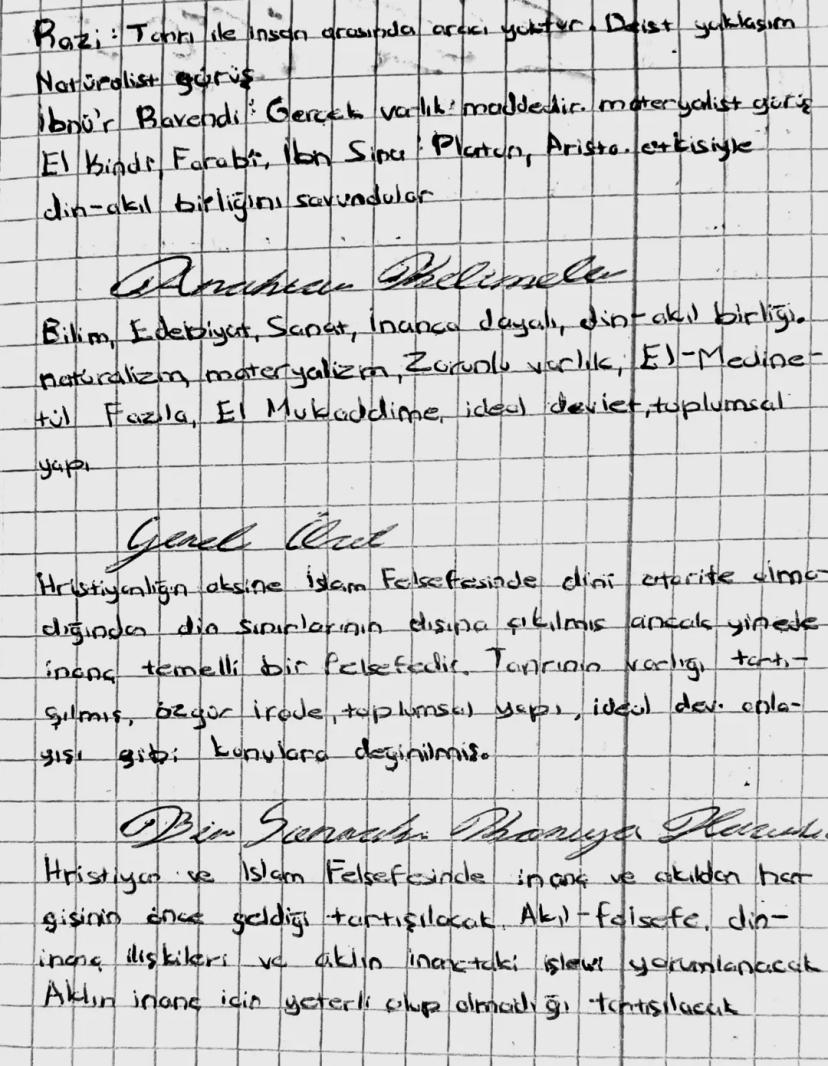 Razi: Tanrı ile insan arasında aracı yoktur. Deist yaklaşım
Natüralist görüş
İbnü'r Ravendi: Gerçek varlık: maddedir. materyalist görüş
El Kindi, Farabi, İbn Sina: Platon, Aristo. etkisiyle
din-akıl birliğini savundular
Anahtar Kelimeler
Bilim, Edebiyat, Sanat, İnanca dayalı, din-akıl birliği.
natüralizm, materyalizm, Zorunlu varlık, El-Medine-
tül Fazıla, El Mukaddime, ideal devlet, toplumsal
yapı
Genel Özet
Hristiyanlığın aksine İslam Felsefesinde dini otorite olma-
dığından din sınırlarının dışına çıkılmış ancak yinede
inanç temelli bir felsefedir. Tanrının varlığı tartı-
şılmış, özgür irade, toplumsal yapı, ideal dev. anla-
yışı gibi konulara değinilmiş.
Bir Sonraki Konuya Hazırlık
Hristiyan ve İslam Felsefesinde inanç ve akıldan han
gisinin önce geldiği tartışılacak. Akıl-felsefe, din-
inanç ilişkileri ve aklın inançtaki işlevi yorumlanacak
Aklın inanç için yeterli olup olmadığı tartışılacak